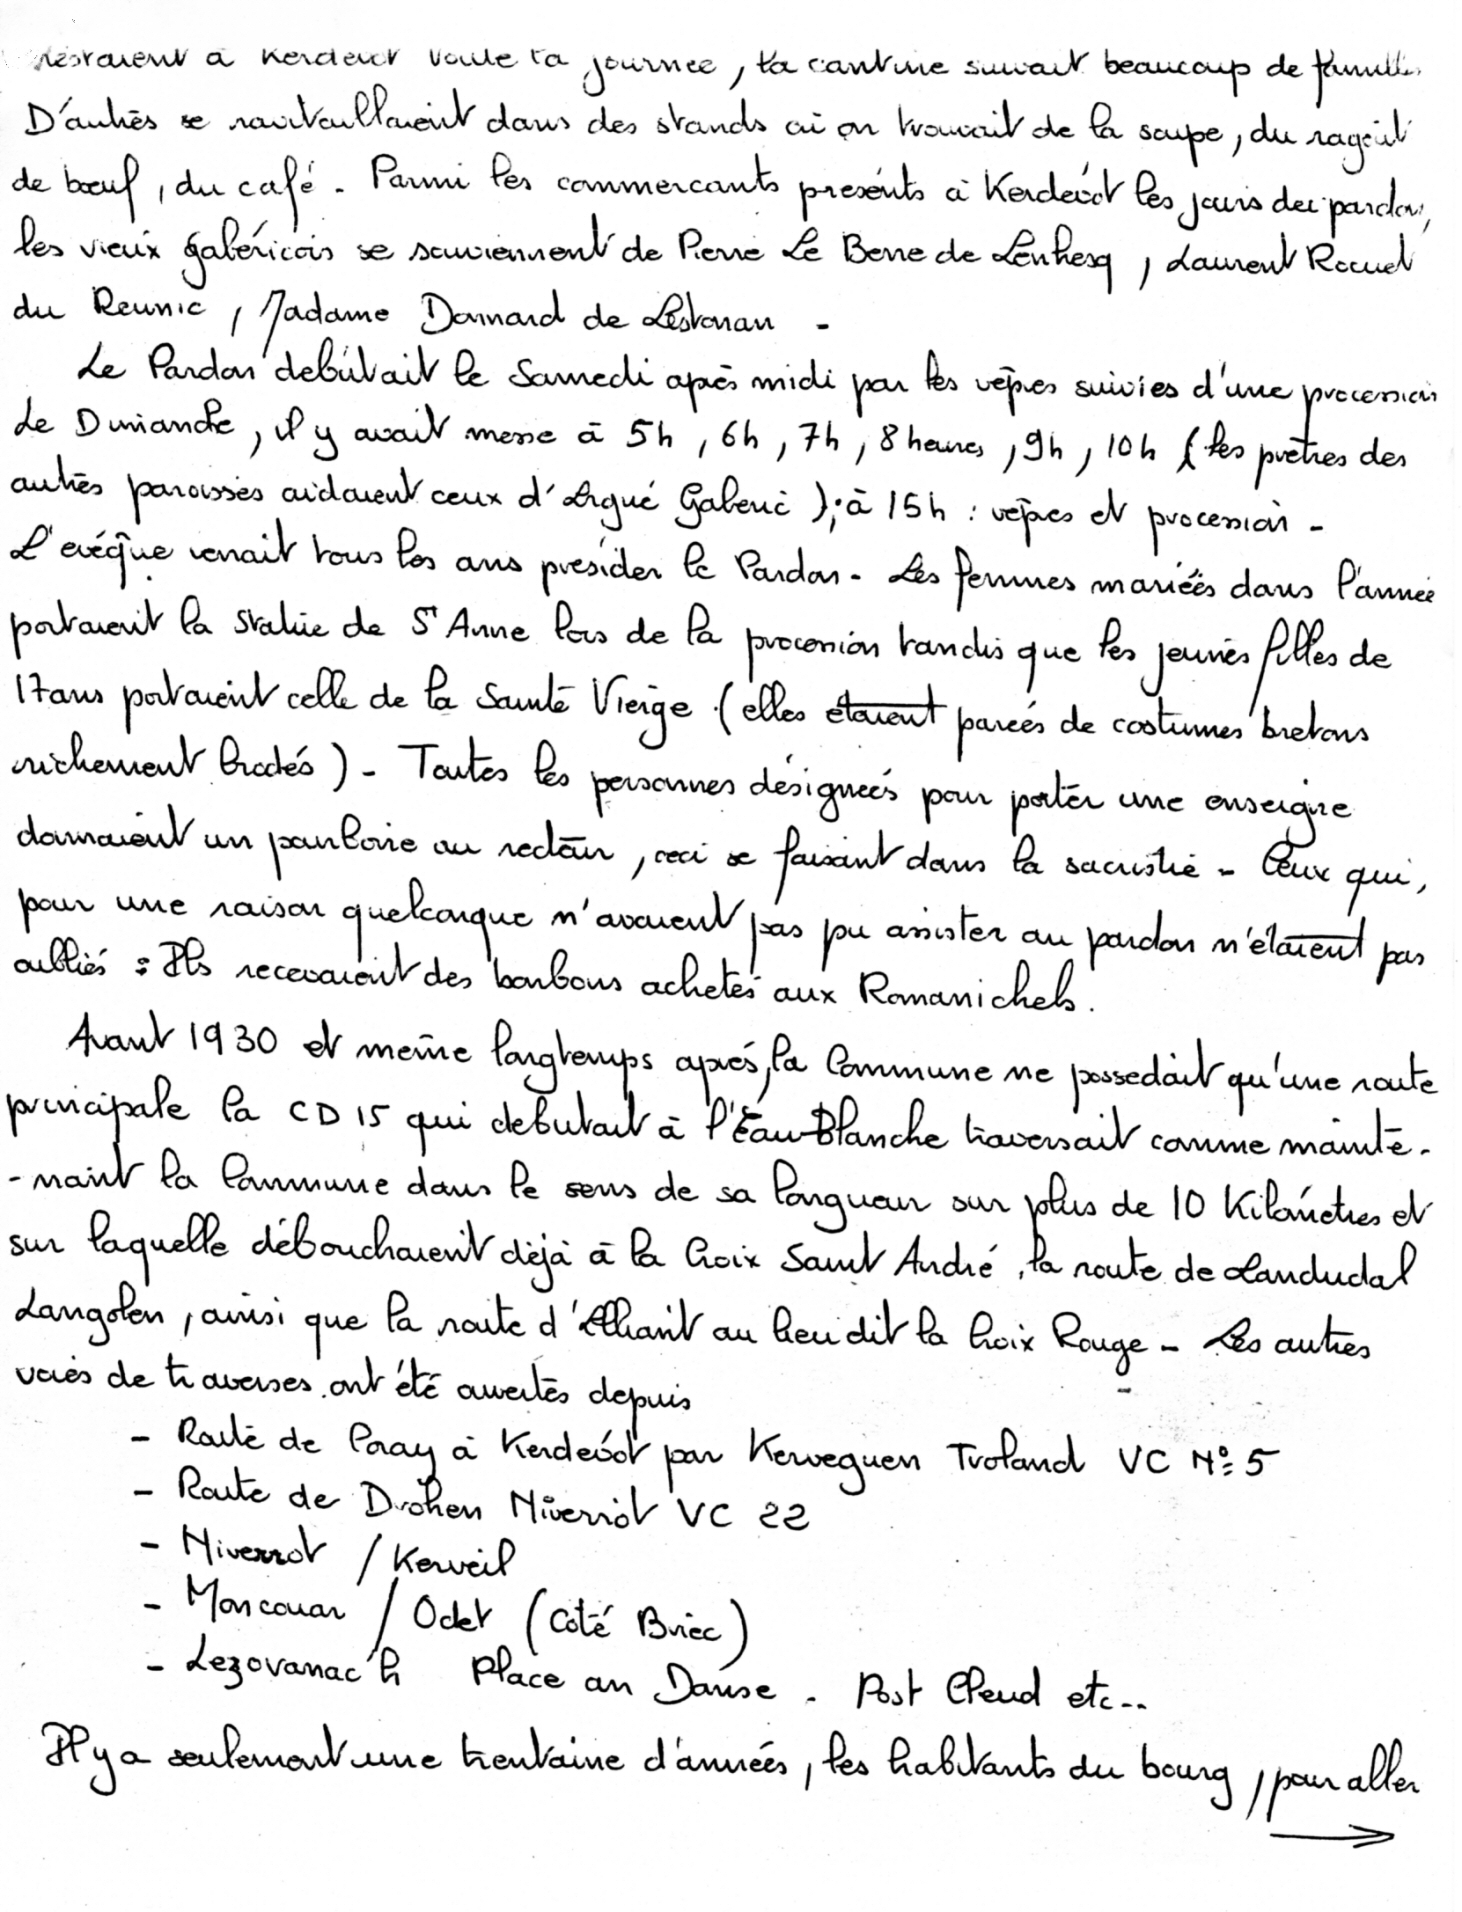 restaient à Kerdevot toute la journée, la cantine suivait beaucoup de familles
D'autres se ravitaillaient dans des stands où on trouvait de la soupe, du ragoût
de bœuf, du café. Parmi les commercants presents à Kerdevot les jours de pardon,
les vieux gabéricois se souviennent de Pierre Le Berre de Lenhesq, Laurent Rocuet
du Reunic, Madame Donnard de Lestonan -
Le Pardon debutait le Samedi après midi par les vêpres suivies d'une procession
Le Dimanche, il y avait messe à 5h, 6h, 7h, 8 heures, 9h, 10h (les prêtres des
autres paroisses aidaient ceux d'Ergué Gaberic); à 15h : vêpres et procession -
L'evêque venait tous les ans presider le Pardon - Les femmes mariées dans l'année
portaient la Statue de St Anne lors de la procession tandis que les jeunes filles de
17 ans portaient celle de la Sainte Vierge (elles étaient parées de costumes bretons
richement brodés) - Toutes les personnes désignées pour porter une enseigne
donnaient un pourboire au recteur, ceci se faisant dans la sacristie - Ceux qui,
pour une raison quelconque n'avaient pas pu assister au pardon n'étaient pas
oubliés : Ils recevaient des bonbons achetés aux Romanichels.
Avant 1930 et même longtemps après, la Commune ne possedait qu'une route
principale la CD 15 qui debutait à l'Eau Blanche traversait comme mainte-
-nant la Commune dans le sens de sa longueur sur plus de 10 Kilomètres et
sur laquelle débouchaient déjà à la Croix Saint André, la route de Landudal
Langolen, ainsi que la route d'Elliant au lieu dit la Croix Rouge - Les autres
voies de traverses ont été ouvertes depuis
- Route de Coray à Kerdevot par Kerveguen Troland VC N° 5
- Route de Drohen Niverrot VC 22
- Niverrot / Kerveil
- Moncouar / Odet (Coté Briec)
- Lezovanac'h Place an Danse - Post Cleud etc..
Il y a seulement une trentaine d'années, les habitants du bourg, pour aller
→